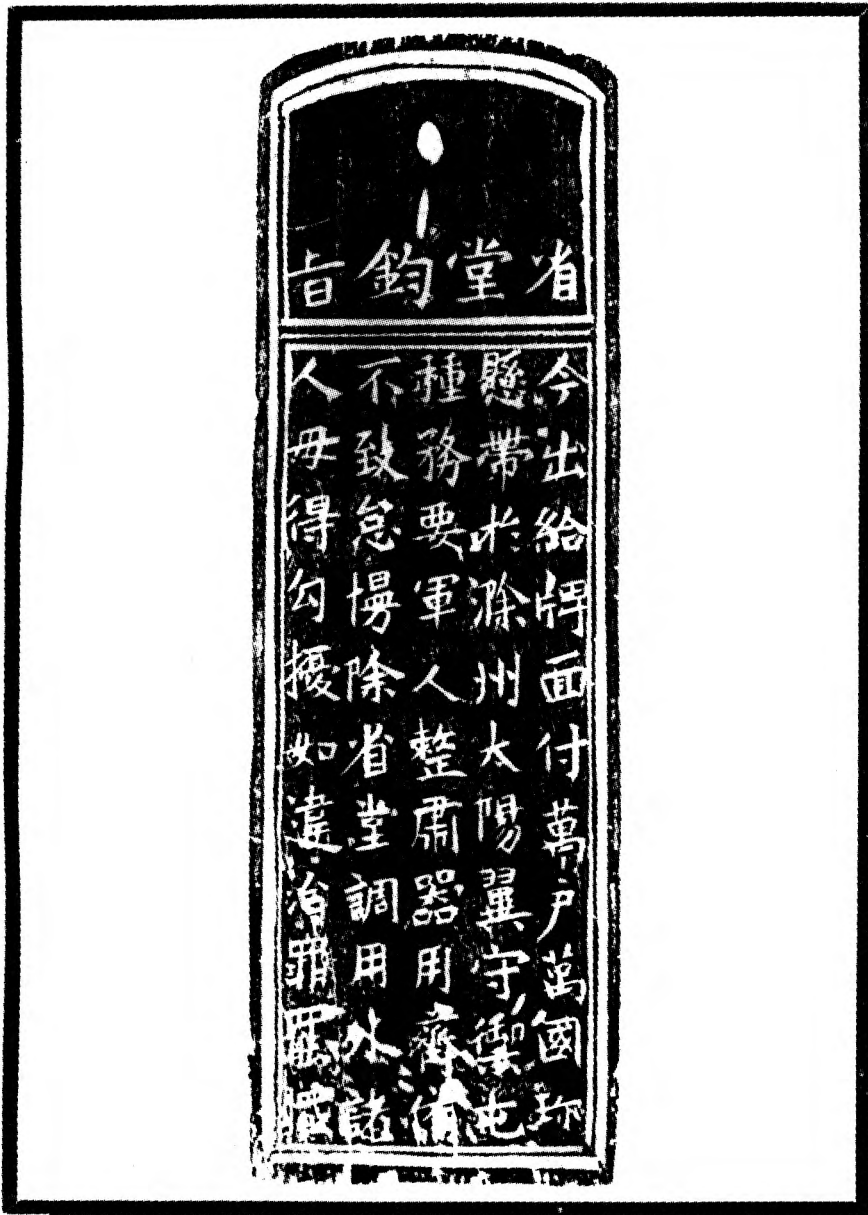 省堂鈞旨
今出給牌面付萬户萬國珎
懸帶於滁州大陽翼守禦屯
種務要軍人整肅器用齊備
不致怠慢除省堂調用外諸
人毋得勾擾如違治罪罷職